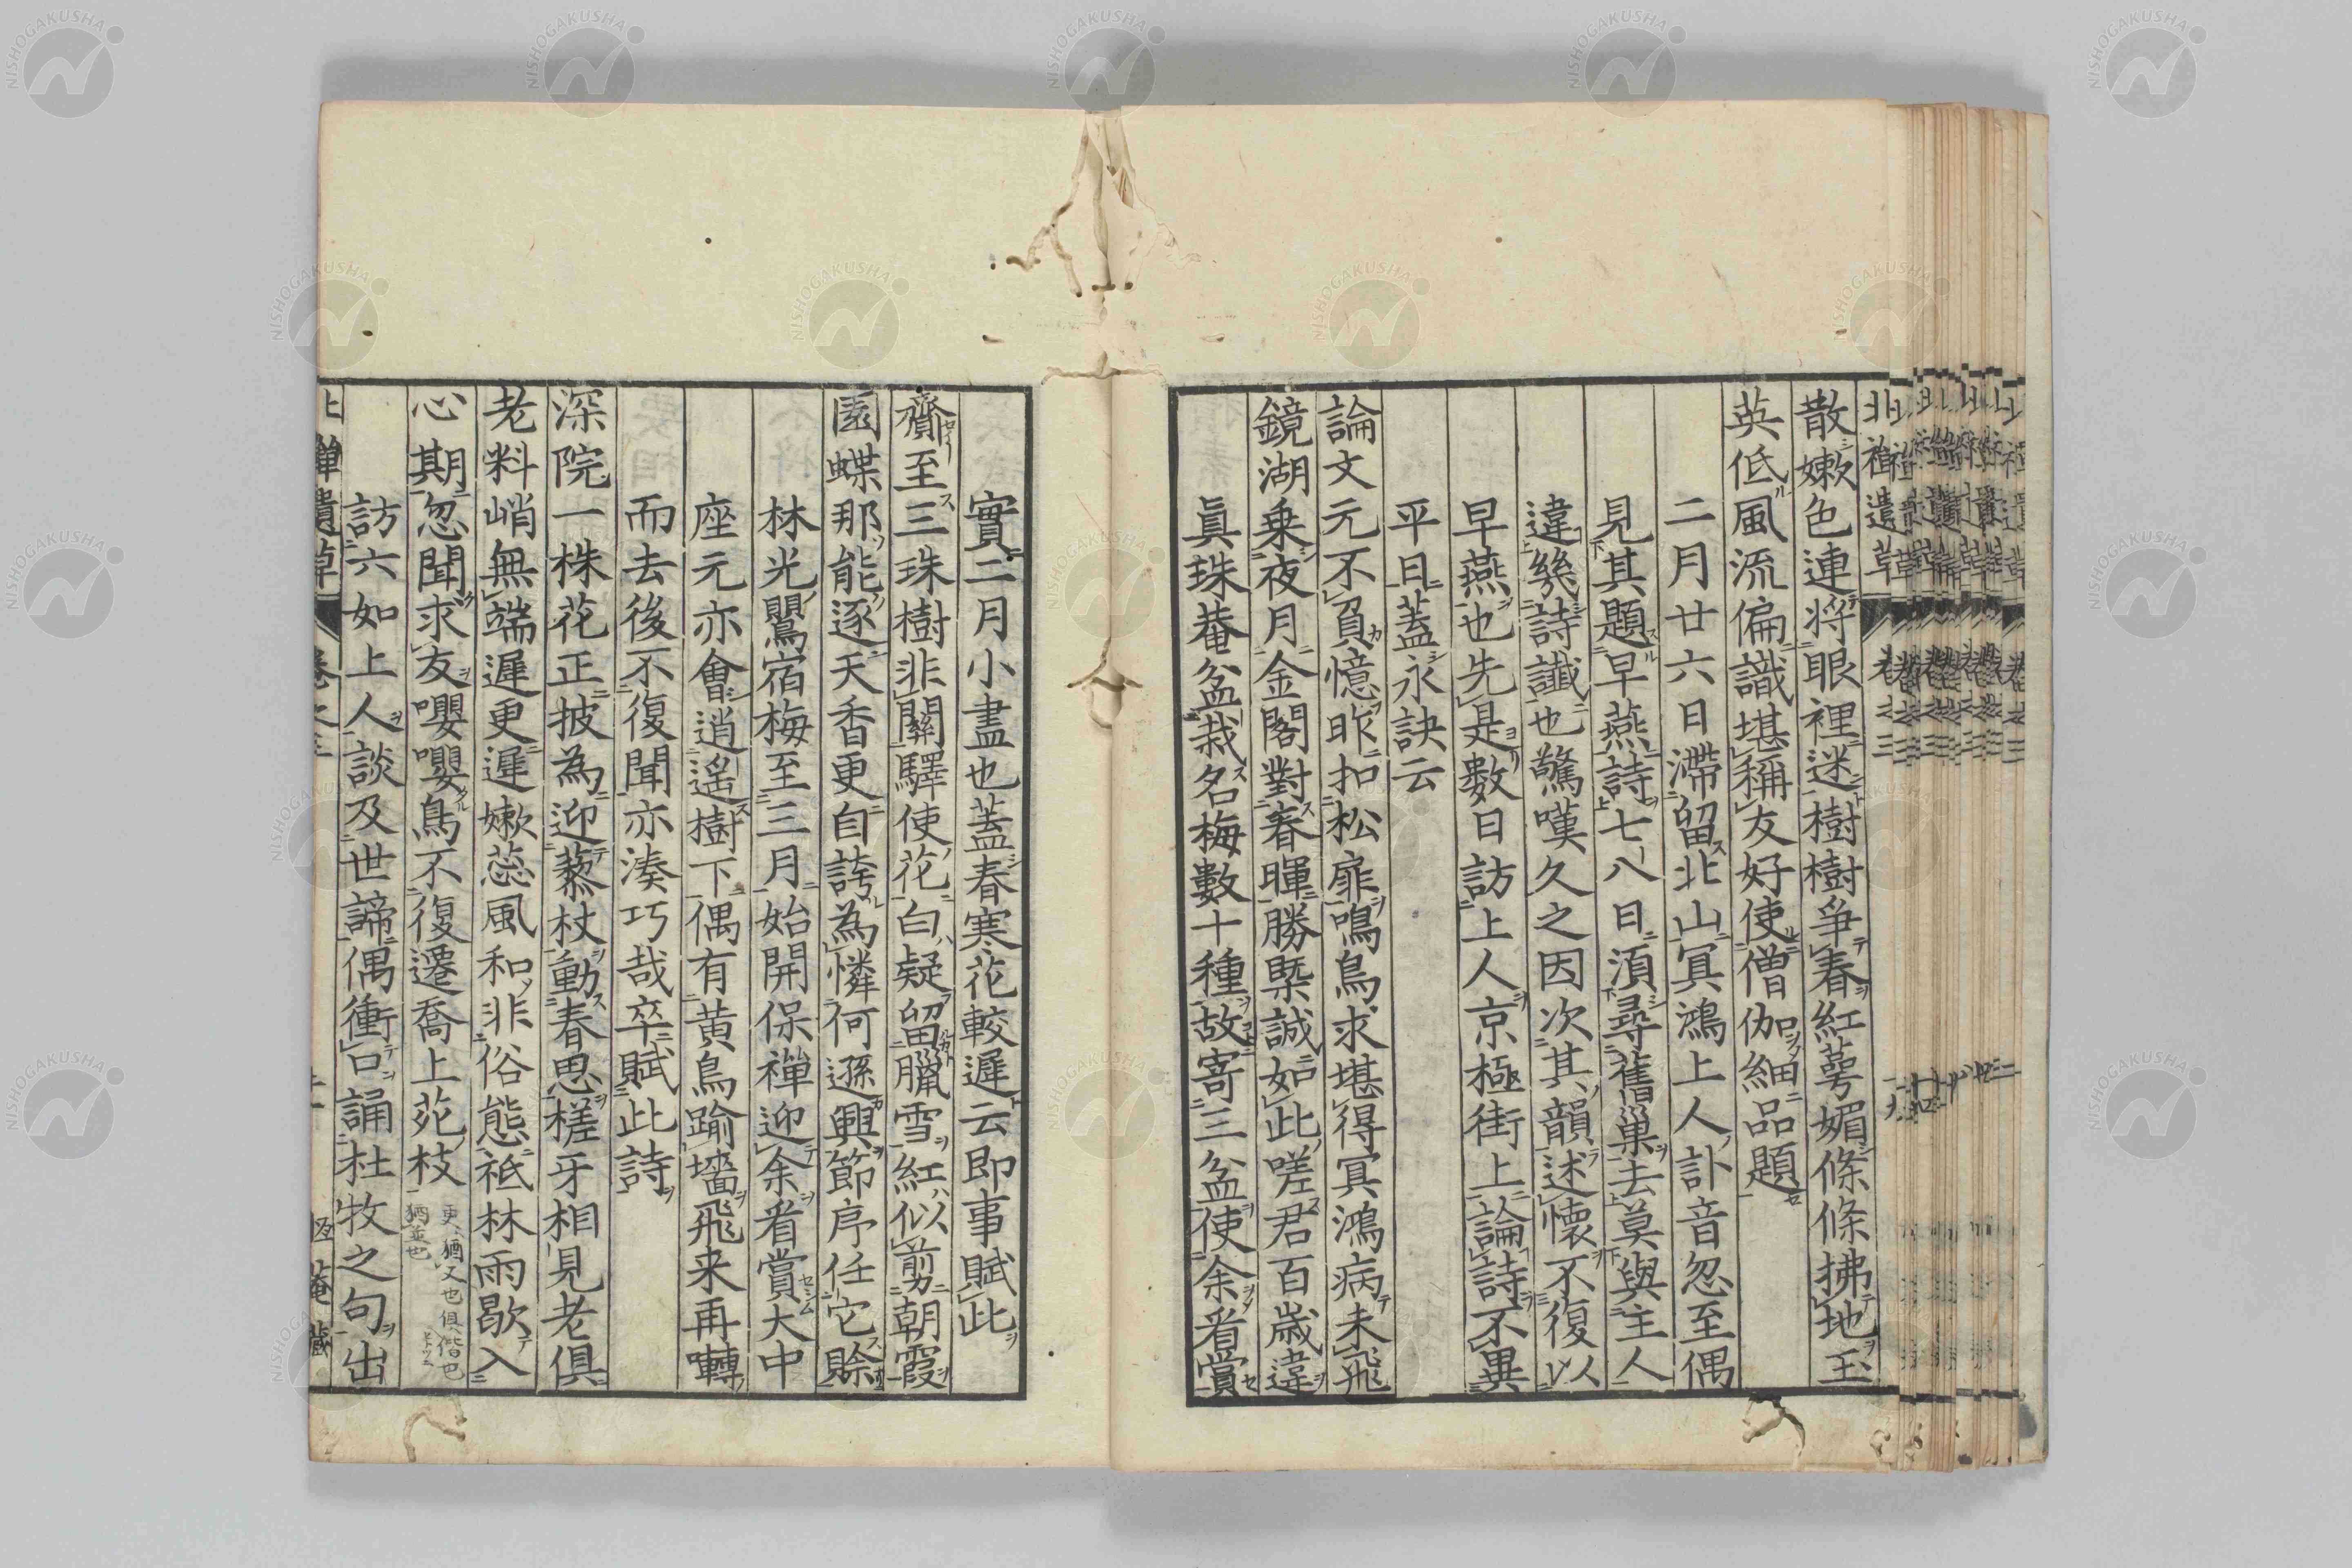 散嫩色連將眼裡迷樹樹爭春紅蕚媚條條拂地玉
英低風流偏識堪稱友好使僧伽細品題
二月廿六日滯留北山冥鴻上人訃音忽至偶
見其題早燕詩七八日湏尋舊巢去莫與主人
違幾詩讖也驚嘆久之因次其韻述懷不復以
早燕也先是數日訪上人京極街上論詩不異
平日蓋永訣云
論文元不負憶昨扣松扉鳴鳥求堪得冥鴻病未飛
鏡湖乗夜月金閣對春暉勝槩誠如此嗟君百歳違
眞珠菴盆栽名梅數十種故寄三盆使余看賞
實二月小盡也蓋春寒花較遲云即事賦此
齎至三珠樹非關驛使花白疑留臘雪紅似剪朝霞
園蝶那能逐天香更自誇為憐何遜興節序任它賒
林光鸎宿梅至三月始開保禅迎余看賞大中
座元亦會逍遥樹下偶有黄鳥踰墻飛来再囀
而去後不復聞亦湊巧哉卒賦此詩
深院一株花正披為迎藜杖動春思槎牙相見老俱
老料峭無端遲更遲嫩蕊風和非俗態祗林雨歇入
心期忽聞求友嚶嚶鳥不復遷喬上苑枝
更、猶又也俱偕也
猶並也
訪六如上人談及世諦偶衝口誦杜牧之句出
北禅遺草
卷之三
北禅遺草
卷之三